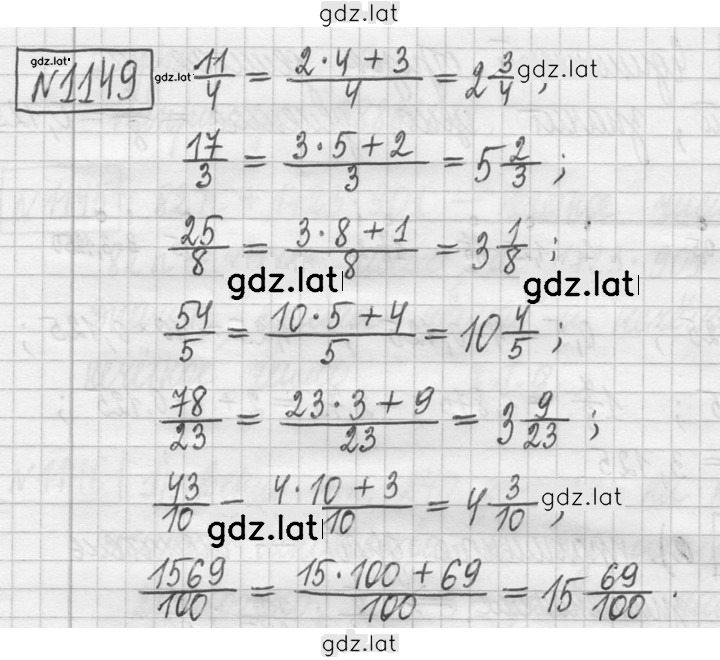 gdz.lat
gdz.lat
№1149 gdz.lat 11/4 = (2·4+3)/4 = 2 3/4 gdz.lat ,
17/3 = (3·5+2)/3 = 5 2/3 ;
25/8 = (3·8+1)/8 = 3 1/8 ;
gdz.lat gdz.lat
54/5 = (10·5+4)/5 = 10 4/5 ;
78/23 = (23·3+9)/23 = 3 9/23 ;
43/10 - (4·10+3)/10 = 4 3/10 gdz.lat ,
gdz.lat
1569/100 = (15·100+69)/100 = 15 69/100 .
gdz.lat